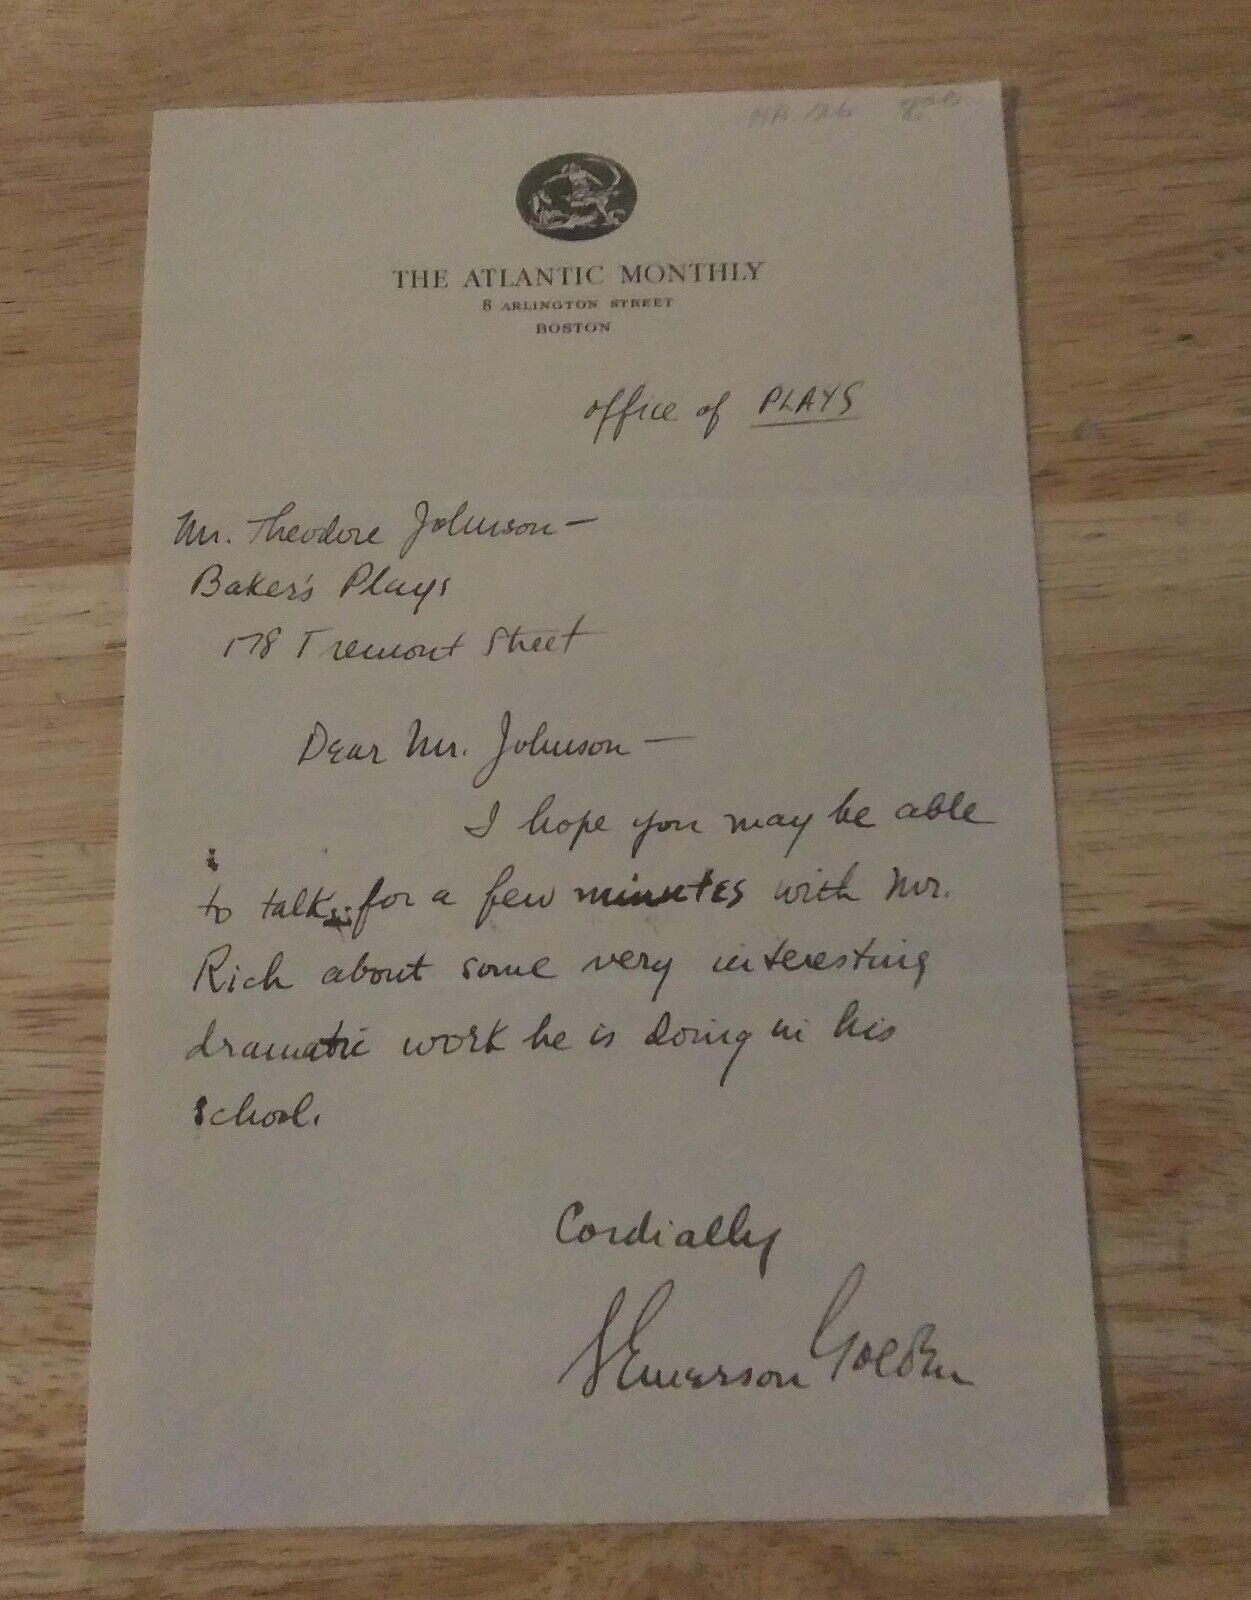 THE ATLANTIC MONTHLY
8 ARLINGTON STREET
BOSTON
office of PLAYS
Mr. Theodore Johnson —
Baker's Plays
178 Tremont Street
Dear Mr. Johnson —
I hope you may be able
to talk for a few minutes with Mr.
Rich about some very interesting
dramatic work he is doing in his
school.
Cordially
S Emerson Golden